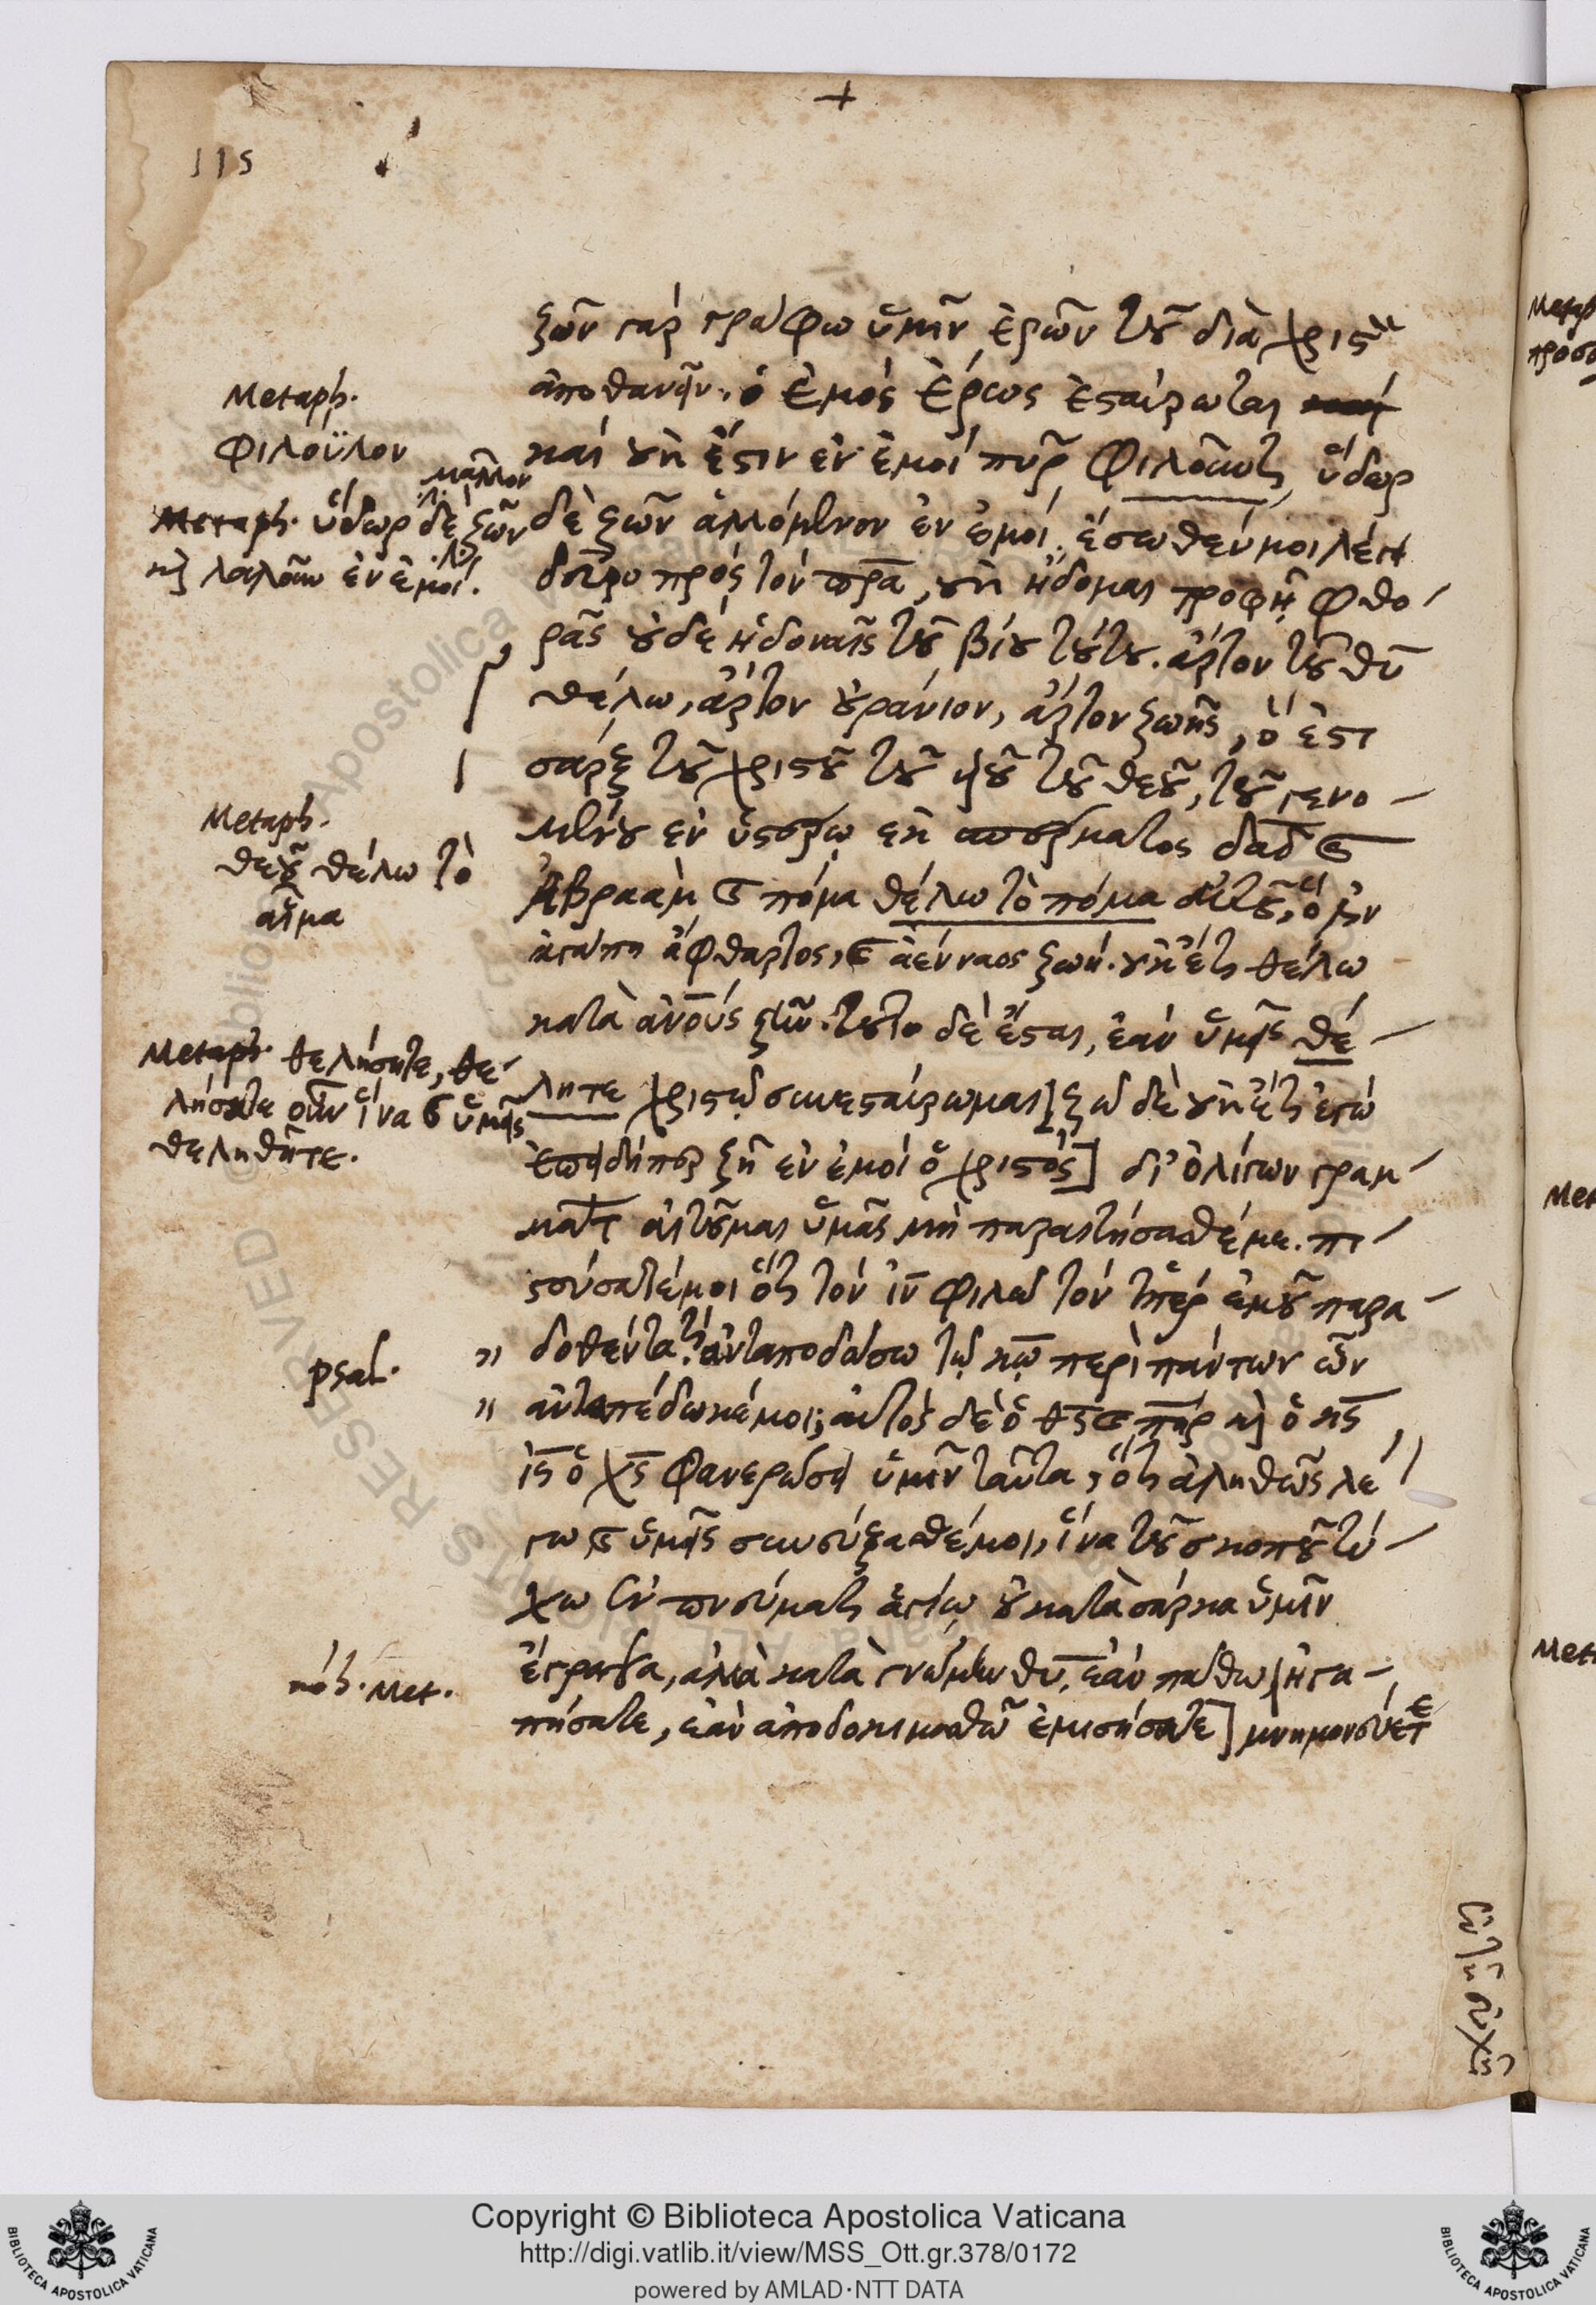 +
115
ζῶν γὰρ γράφω ὑμῖν ἐρῶν τοῦ διὰ χριστὸν
ἀποθανεῖν. ὁ ἐμὸς ἔρως ἐσταύρωται
καὶ οὐκ ἔστιν ἐν ἐμοὶ πῦρ φιλοῦν τι, ὕδωρ
δὲ ζῶν ἁλλόμενον ἐν ἐμοὶ, ἔσωθέν μοι λέγει
δεῦρο πρὸς τὸν πρα̅, οὐχ ἥδομαι τροφῇ φθο-
ρᾶς οὐδὲ ἡδοναῖς τοῦ βίου τούτου. ἄρτον τοῦ θυ̅
θέλω, ἄρτον οὐράνιον, ἄρτον ζωῆς, ὅ ἐστι
σὰρξ τοῦ χριστοῦ τοῦ υἱοῦ τοῦ θεοῦ, τοῦ γενο-
μένου ἐν ὑστέρῳ ἐκ σπέρματος δα̅δ̅ καὶ
Ἀβραὰμ καὶ πόμα θέλω τὸ πόμα αὐτοῦ, ὅ ἐστιν
ἀγάπη ἄφθαρτος, καὶ ἀένναος ζωή. οὐκ ἔτι θέλω
κατὰ ἀνο̅υς ζῆν. τοῦτο δὲ ἔσται, ἐὰν ὑμεῖς θέ-
λητε χριστῷ συνεσταύρωμαι] ζῶ δὲ οὐκ ἔτι ἐγώ
ἐπειδήπερ ζῇ ἐν ἐμοὶ ὁ χριστός] δι' ὀλίγων γραμ-
μάτων αἰτοῦμαι ὑμᾶς μὴ παραιτήσασθέ με. πι-
στεύσατέ μοι ὅτι τὸν ι̅ν̅ φιλῶ τὸν ὑπὲρ ἐμοῦ παρα-
" δοθέντα. τί ἀνταποδώσω τῷ κ̅ῳ̅ περὶ πάντων ὧν
" ἀνταπέδωκέ μοι; αὐτὸς δὲ ὁ θ̅ς̅ καὶ πη̅ρ καὶ ὁ κ̅ς̅
ι̅ς̅ ὁ χ̅ς̅ φανερώσει ὑμῖν ταῦτα, ὅτι ἀληθῶς λέ-
γω καὶ ὑμεῖς συνεύξασθέ μοι, ἵνα τοῦ σκοποῦ τύ-
χω ἐν πνεύματι ἁγίῳ οὐ κατὰ σάρκα ὑμῖν
ἔγραψα, ἀλλὰ κατὰ γνώμην θυ̅. ἐὰν πάθω, ἠγα-
πήσατε, ἐὰν ἀποδοκιμασθῶ ἐμισήσατε] μνημονεύετε
Metaph.
φιλοϋλον
μᾶλλον
Metaph. ὕδωρ δὲ ζῶν
καὶ λαλοῦν ἐν ἐμοί.
Metaph.
θεοῦ θέλω τὸ
αἷμα
Metaph. θελήσατε, θε-
λήσατε οὖν ἵνα καὶ ὑμεῖς
θεληθῆτε.
psal.
Met.
ἐν τῇ εὐχῇ
Copyright © Biblioteca Apostolica Vaticana
http://digi.vatlib.it/view/MSS_Ott.gr.378/0172
powered by AMLAD·NTT DATA
BIBLIOTECA APOSTOLICA VATICANA
BIBLIOTECA APOSTOLICA VATICANA